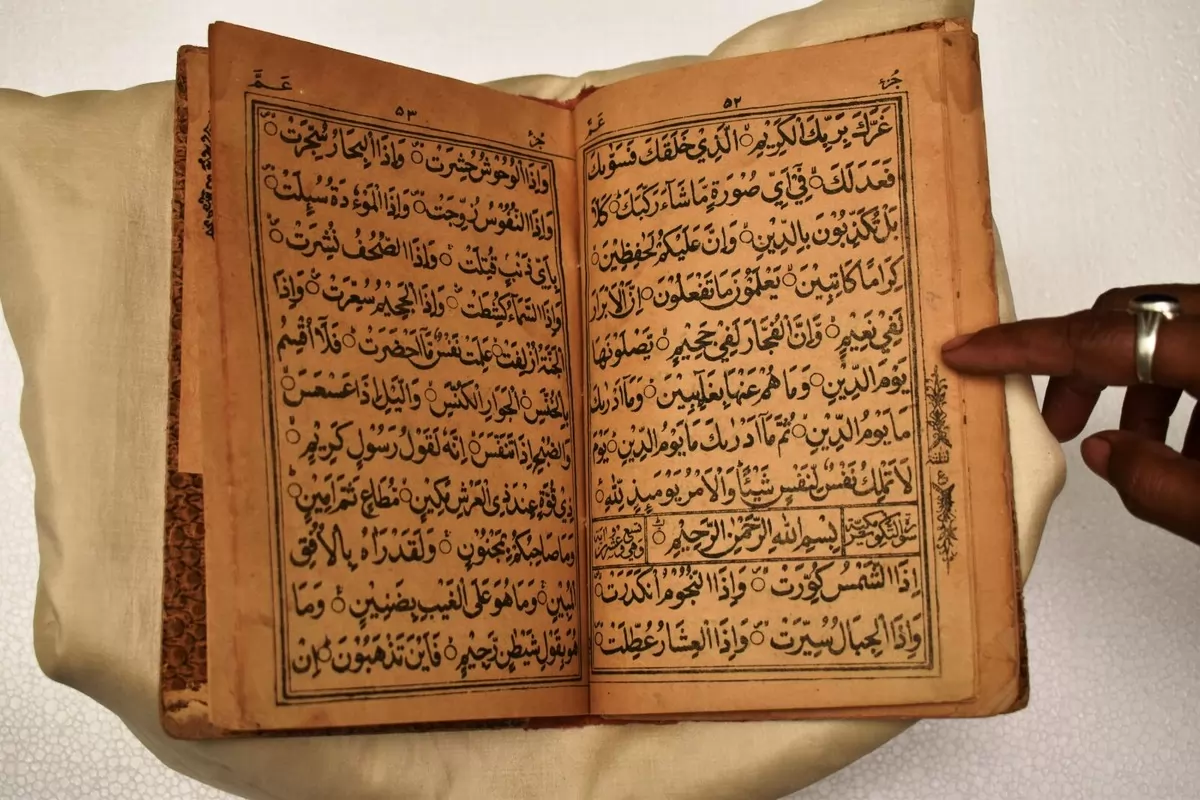 جُزْء
۵۲
عَمَّ
غَرَّكَ بِرَبِّكَ الْكَرِيْمِ ○ الَّذِيْ خَلَقَكَ فَسَوّٰىكَ
فَعَدَلَكَ ○ فِيْٓ اَيِّ صُوْرَةٍ مَّا شَآءَ رَكَّبَكَ ○ كَلَّا
بَلْ تُكَذِّبُوْنَ بِالدِّيْنِ ○ وَاِنَّ عَلَيْكُمْ لَحٰفِظِيْنَ ○
كِرَامًا كَاتِبِيْنَ ○ يَعْلَمُوْنَ مَا تَفْعَلُوْنَ ○ اِنَّ الْاَبْرَارَ
لَفِيْ نَعِيْمٍ ○ وَّاِنَّ الْفُجَّارَ لَفِيْ جَحِيْمٍ ○ يَصْلَوْنَهَا
يَوْمَ الدِّيْنِ ○ وَمَا هُمْ عَنْهَا بِغَآئِبِيْنَ ○ وَمَآ اَدْرٰىكَ
مَا يَوْمُ الدِّيْنِ ○ ثُمَّ مَآ اَدْرٰىكَ مَا يَوْمُ الدِّيْنِ ○ يَوْمَ
لَا تَمْلِكُ نَفْسٌ لِّنَفْسٍ شَيْئًا وَالْاَمْرُ يَوْمَئِذٍ لِّلّٰهِ ○
سورة التكوير مكية بِسْمِ اللّٰهِ الرَّحْمٰنِ الرَّحِيْمِ ○
اِذَا الشَّمْسُ كُوِّرَتْ ○ وَاِذَا النُّجُوْمُ انْكَدَرَتْ ○
وَاِذَا الْجِبَالُ سُيِّرَتْ ○ وَاِذَا الْعِشَارُ عُطِّلَتْ ○
جُزْء
۵۳
عَمَّ
وَاِذَا الْوُحُوْشُ حُشِرَتْ ○ وَاِذَا الْبِحَارُ سُجِّرَتْ ○
وَاِذَا النُّفُوْسُ زُوِّجَتْ ○ وَاِذَا الْمَوْءٗدَةُ سُئِلَتْ ○
بِاَيِّ ذَنْۢبٍ قُتِلَتْ ○ وَاِذَا الصُّحُفُ نُشِرَتْ ○
وَاِذَا السَّمَآءُ كُشِطَتْ ○ وَاِذَا الْجَحِيْمُ سُعِّرَتْ ○ وَاِذَا
الْجَنَّةُ اُزْلِفَتْ ○ عَلِمَتْ نَفْسٌ مَّآ اَحْضَرَتْ ○ فَلَآ اُقْسِمُ
بِالْخُنَّسِ ○ الْجَوَارِ الْكُنَّسِ ○ وَالَّيْلِ اِذَا عَسْعَسَ ○
وَالصُّبْحِ اِذَا تَنَفَّسَ ○ اِنَّهٗ لَقَوْلُ رَسُوْلٍ كَرِيْمٍ ○
ذِيْ قُوَّةٍ عِنْدَ ذِي الْعَرْشِ مَكِيْنٍ ○ مُّطَاعٍ ثَمَّ اَمِيْنٍ ○
وَمَا صَاحِبُكُمْ بِمَجْنُوْنٍ ○ وَلَقَدْ رَاٰهُ بِالْاُفُقِ
الْمُبِيْنِ ○ وَمَا هُوَ عَلَى الْغَيْبِ بِضَنِيْنٍ ○ وَمَا
هُوَ بِقَوْلِ شَيْطٰنٍ رَّجِيْمٍ ○ فَاَيْنَ تَذْهَبُوْنَ ○ اِنْ